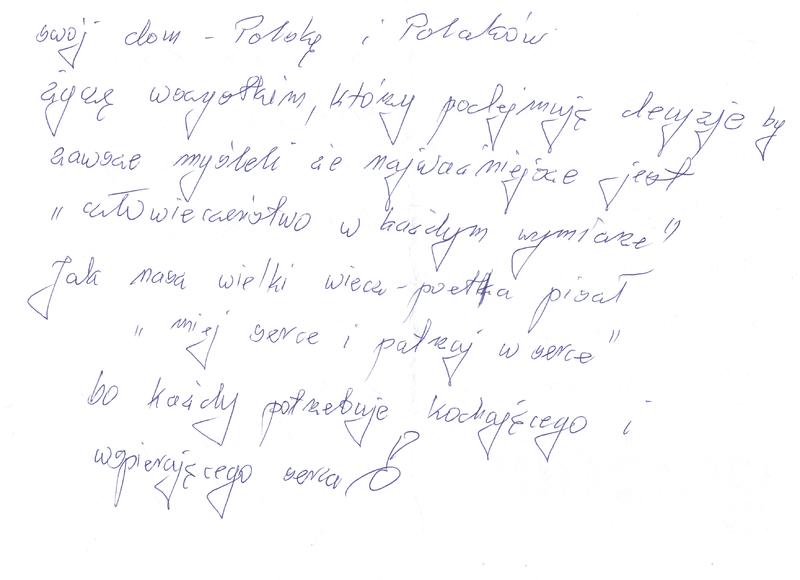 swój dom - Polskę i Polaków
życzę wszystkim, którzy podejmują decyzje by
zawsze myśleli że najważniejsze jest
„człowieczeństwo w każdym wymiarze"
Jak nasz wielki wieszcz-poeta pisał
„miej serce i patrzaj w serce"
bo każdy potrzebuje kochającego i
wspierającego serca